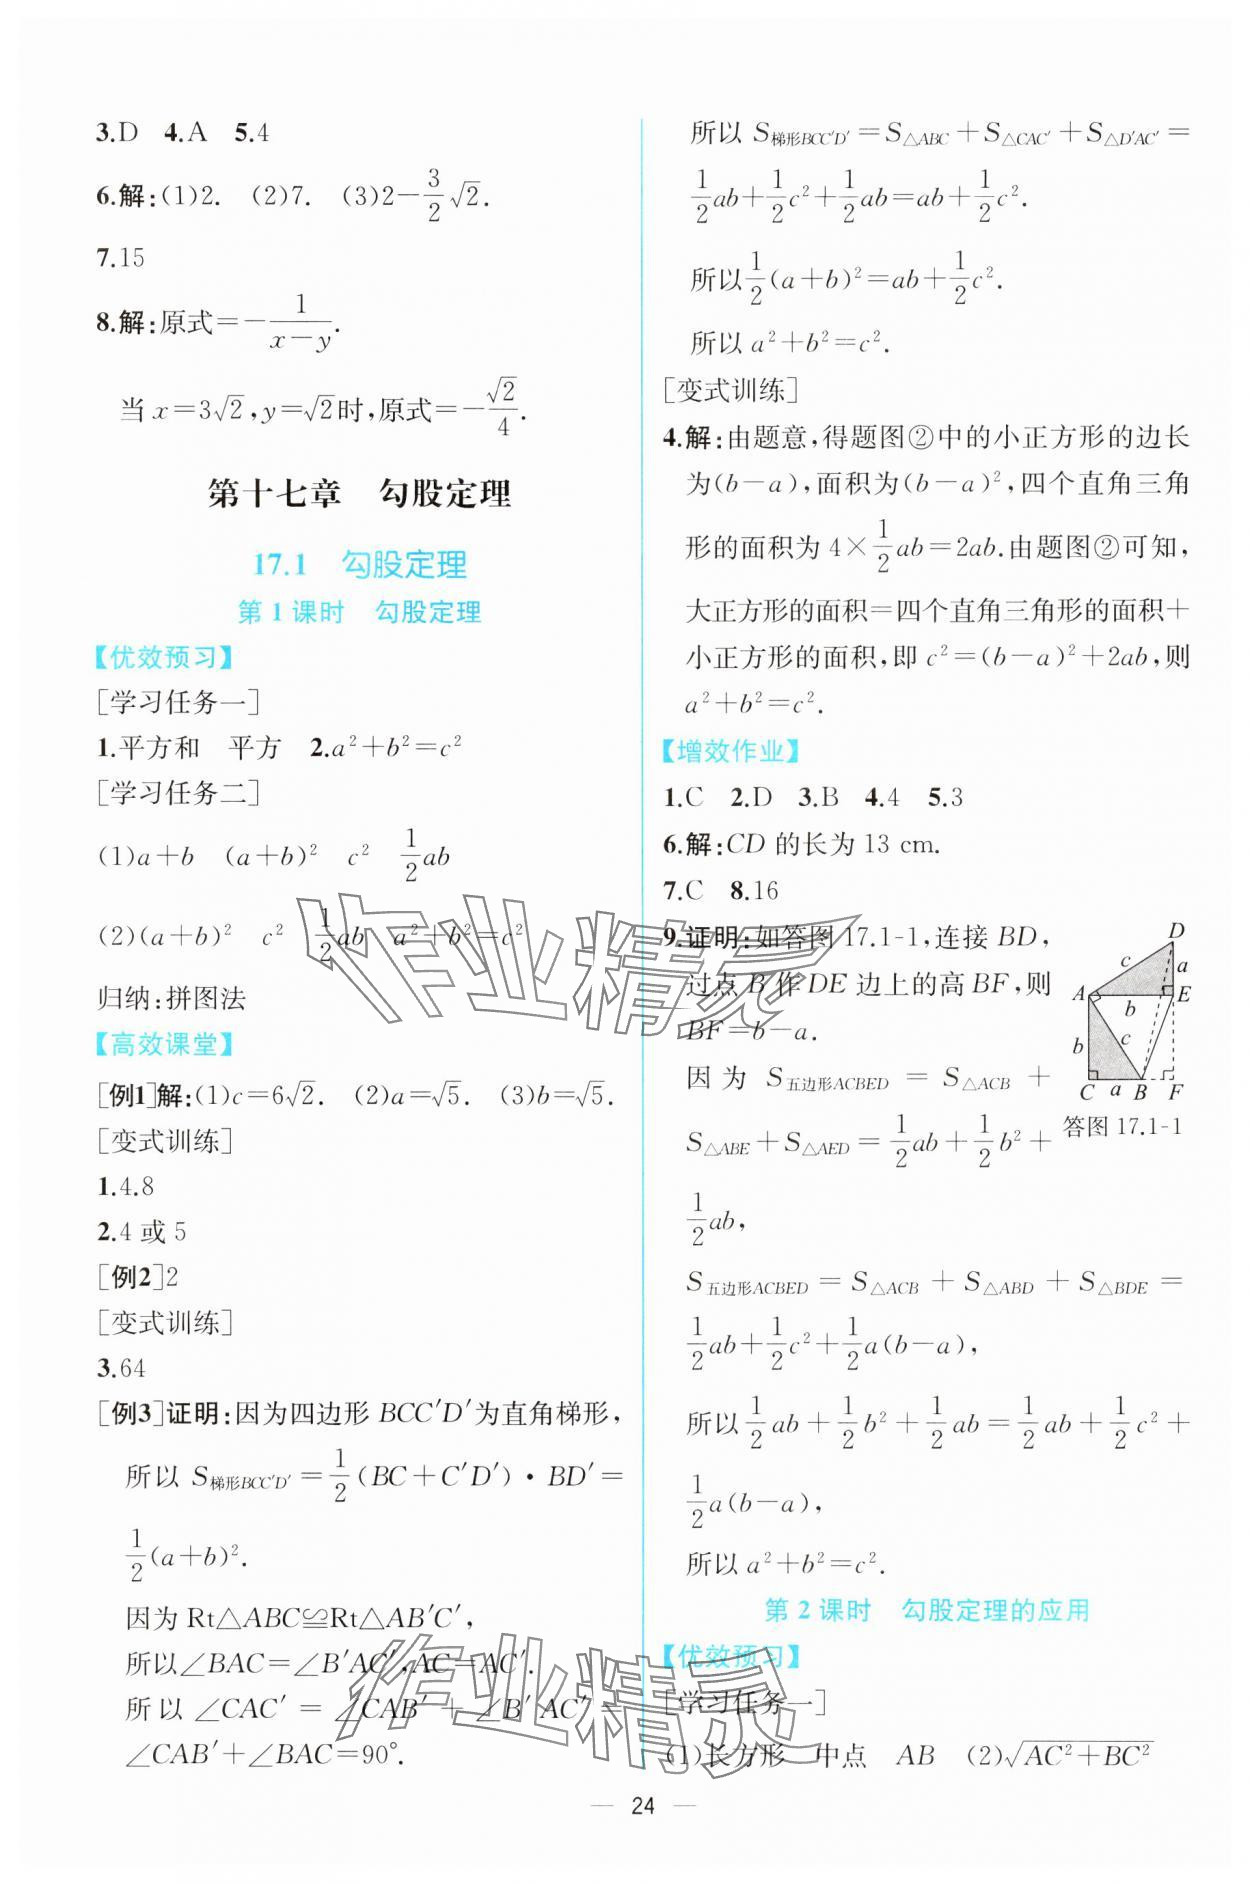 3.D 4.A 5.4
6.解:(1)2. (2)7. (3)2-$\frac{3}{2}\sqrt{2}$.
7.15
8.解:原式=-$\frac{1}{x-y}$.
当 x=3$\sqrt{2}$,y=$\sqrt{2}$时,原式=-$\frac{\sqrt{2}}{4}$.
第十七章 勾股定理
17.1 勾股定理
第1课时 勾股定理
【优效预习】
[学习任务一]
1.平方和 平方 2.a²+b²=c²
[学习任务二]
(1)a+b (a+b)² c² $\frac{1}{2}$ab
(2)(a+b)² c² $\frac{1}{2}$ab a²+b²=c²
归纳:拼图法
【高效课堂】
[例1]解:(1)c=6$\sqrt{2}$. (2)a=$\sqrt{5}$. (3)b=$\sqrt{5}$.
[变式训练]
1.4.8
2.4 或 5
[例2]2
[变式训练]
3.64
[例3]证明:因为四边形 BCC′D′为直角梯形,
所以 S梯形BCC′D′=$\frac{1}{2}$(BC+C′D′)·BD′=
$\frac{1}{2}$(a+b)².
因为 Rt△ABC≌Rt△AB′C′,
所以∠BAC=∠B′AC′,AC=AC′.
所以 ∠CAC′ = ∠CAB′ + ∠B′AC′ =
∠CAB′+∠BAC=90°.
所以 S梯形BCC′D′=S△ABC+S△CAC′+S△D′AC′=
$\frac{1}{2}$ab+$\frac{1}{2}$c²+$\frac{1}{2}$ab=ab+$\frac{1}{2}$c².
所以$\frac{1}{2}$(a+b)²=ab+$\frac{1}{2}$c².
所以 a²+b²=c².
[变式训练]
4.解:由题意,得题图②中的小正方形的边长
为(b-a),面积为(b-a)²,四个直角三角
形的面积为 4×$\frac{1}{2}$ab=2ab.由题图②可知,
大正方形的面积=四个直角三角形的面积+
小正方形的面积,即 c²=(b-a)²+2ab,则
a²+b²=c².
【增效作业】
1.C 2.D 3.B 4.4 5.3
6.解:CD 的长为 13 cm.
7.C 8.16
9.证明:如答图 17.1-1,连接 BD,
过点 B 作 DE 边上的高 BF,则
BF=b-a.
因为 S五边形ACBED = S△ACB +
S△ABE+S△AED=$\frac{1}{2}$ab+$\frac{1}{2}$b²+
$\frac{1}{2}$ab,
D
c
a
A
E
b
b
c
C
a
B
F
答图 17.1-1
S五边形ACBED = S△ACB + S△ABD + S△BDE =
$\frac{1}{2}$ab+$\frac{1}{2}$c²+$\frac{1}{2}$a(b-a),
所以$\frac{1}{2}$ab+$\frac{1}{2}$b²+$\frac{1}{2}$ab=$\frac{1}{2}$ab+$\frac{1}{2}$c²+
$\frac{1}{2}$a(b-a),
所以 a²+b²=c².
第2课时 勾股定理的应用
【优效预习】
[学习任务一]
(1)长方形 中点 AB (2)$\sqrt{AC²+BC²}$
— 24 —
作业精灵
作业精灵